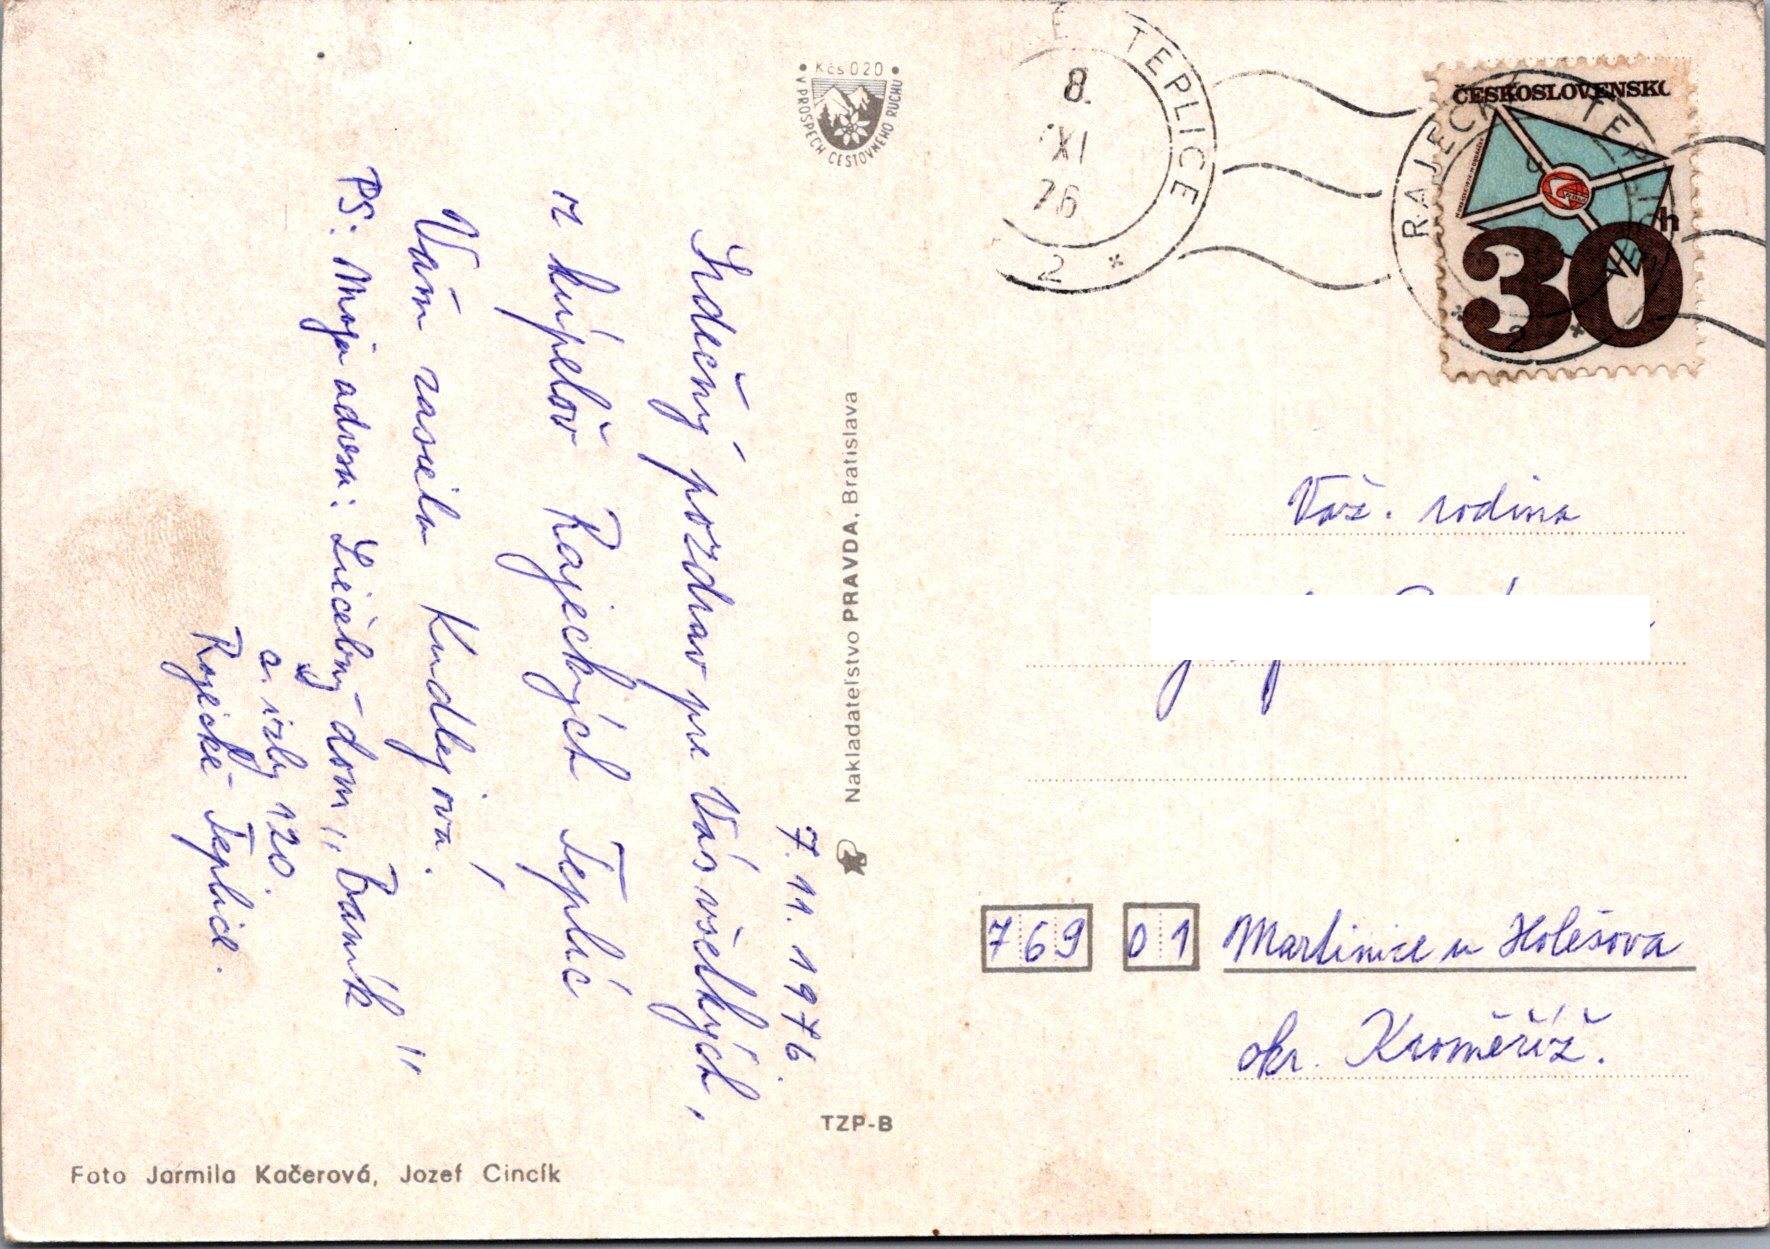 7. 11. 1976.
Srdečný pozdrav pre Vás všetkých,
z kúpeľov Rajeckých Teplíc
Vám zasiela Kudlejová.
PS: Moja adresa: Liečebný dom „Baník"
č. izby 120.
Rajecké Teplice.
Foto Jarmila Kačerová, Jozef Cincík
• Kčs 0 20 •
V PROSPECH CESTOVNÉHO RUCHU
Nakladateľstvo PRAVDA, Bratislava
TZP-B
TEPLICE
8.
XI
76
2 *
ČESKOSLOVENSKO
30 h
RAJECKÉ TEPLICE
* 2 *
Váž. rodina
769 01 Martinice u Holešova
okr. Kroměříž.